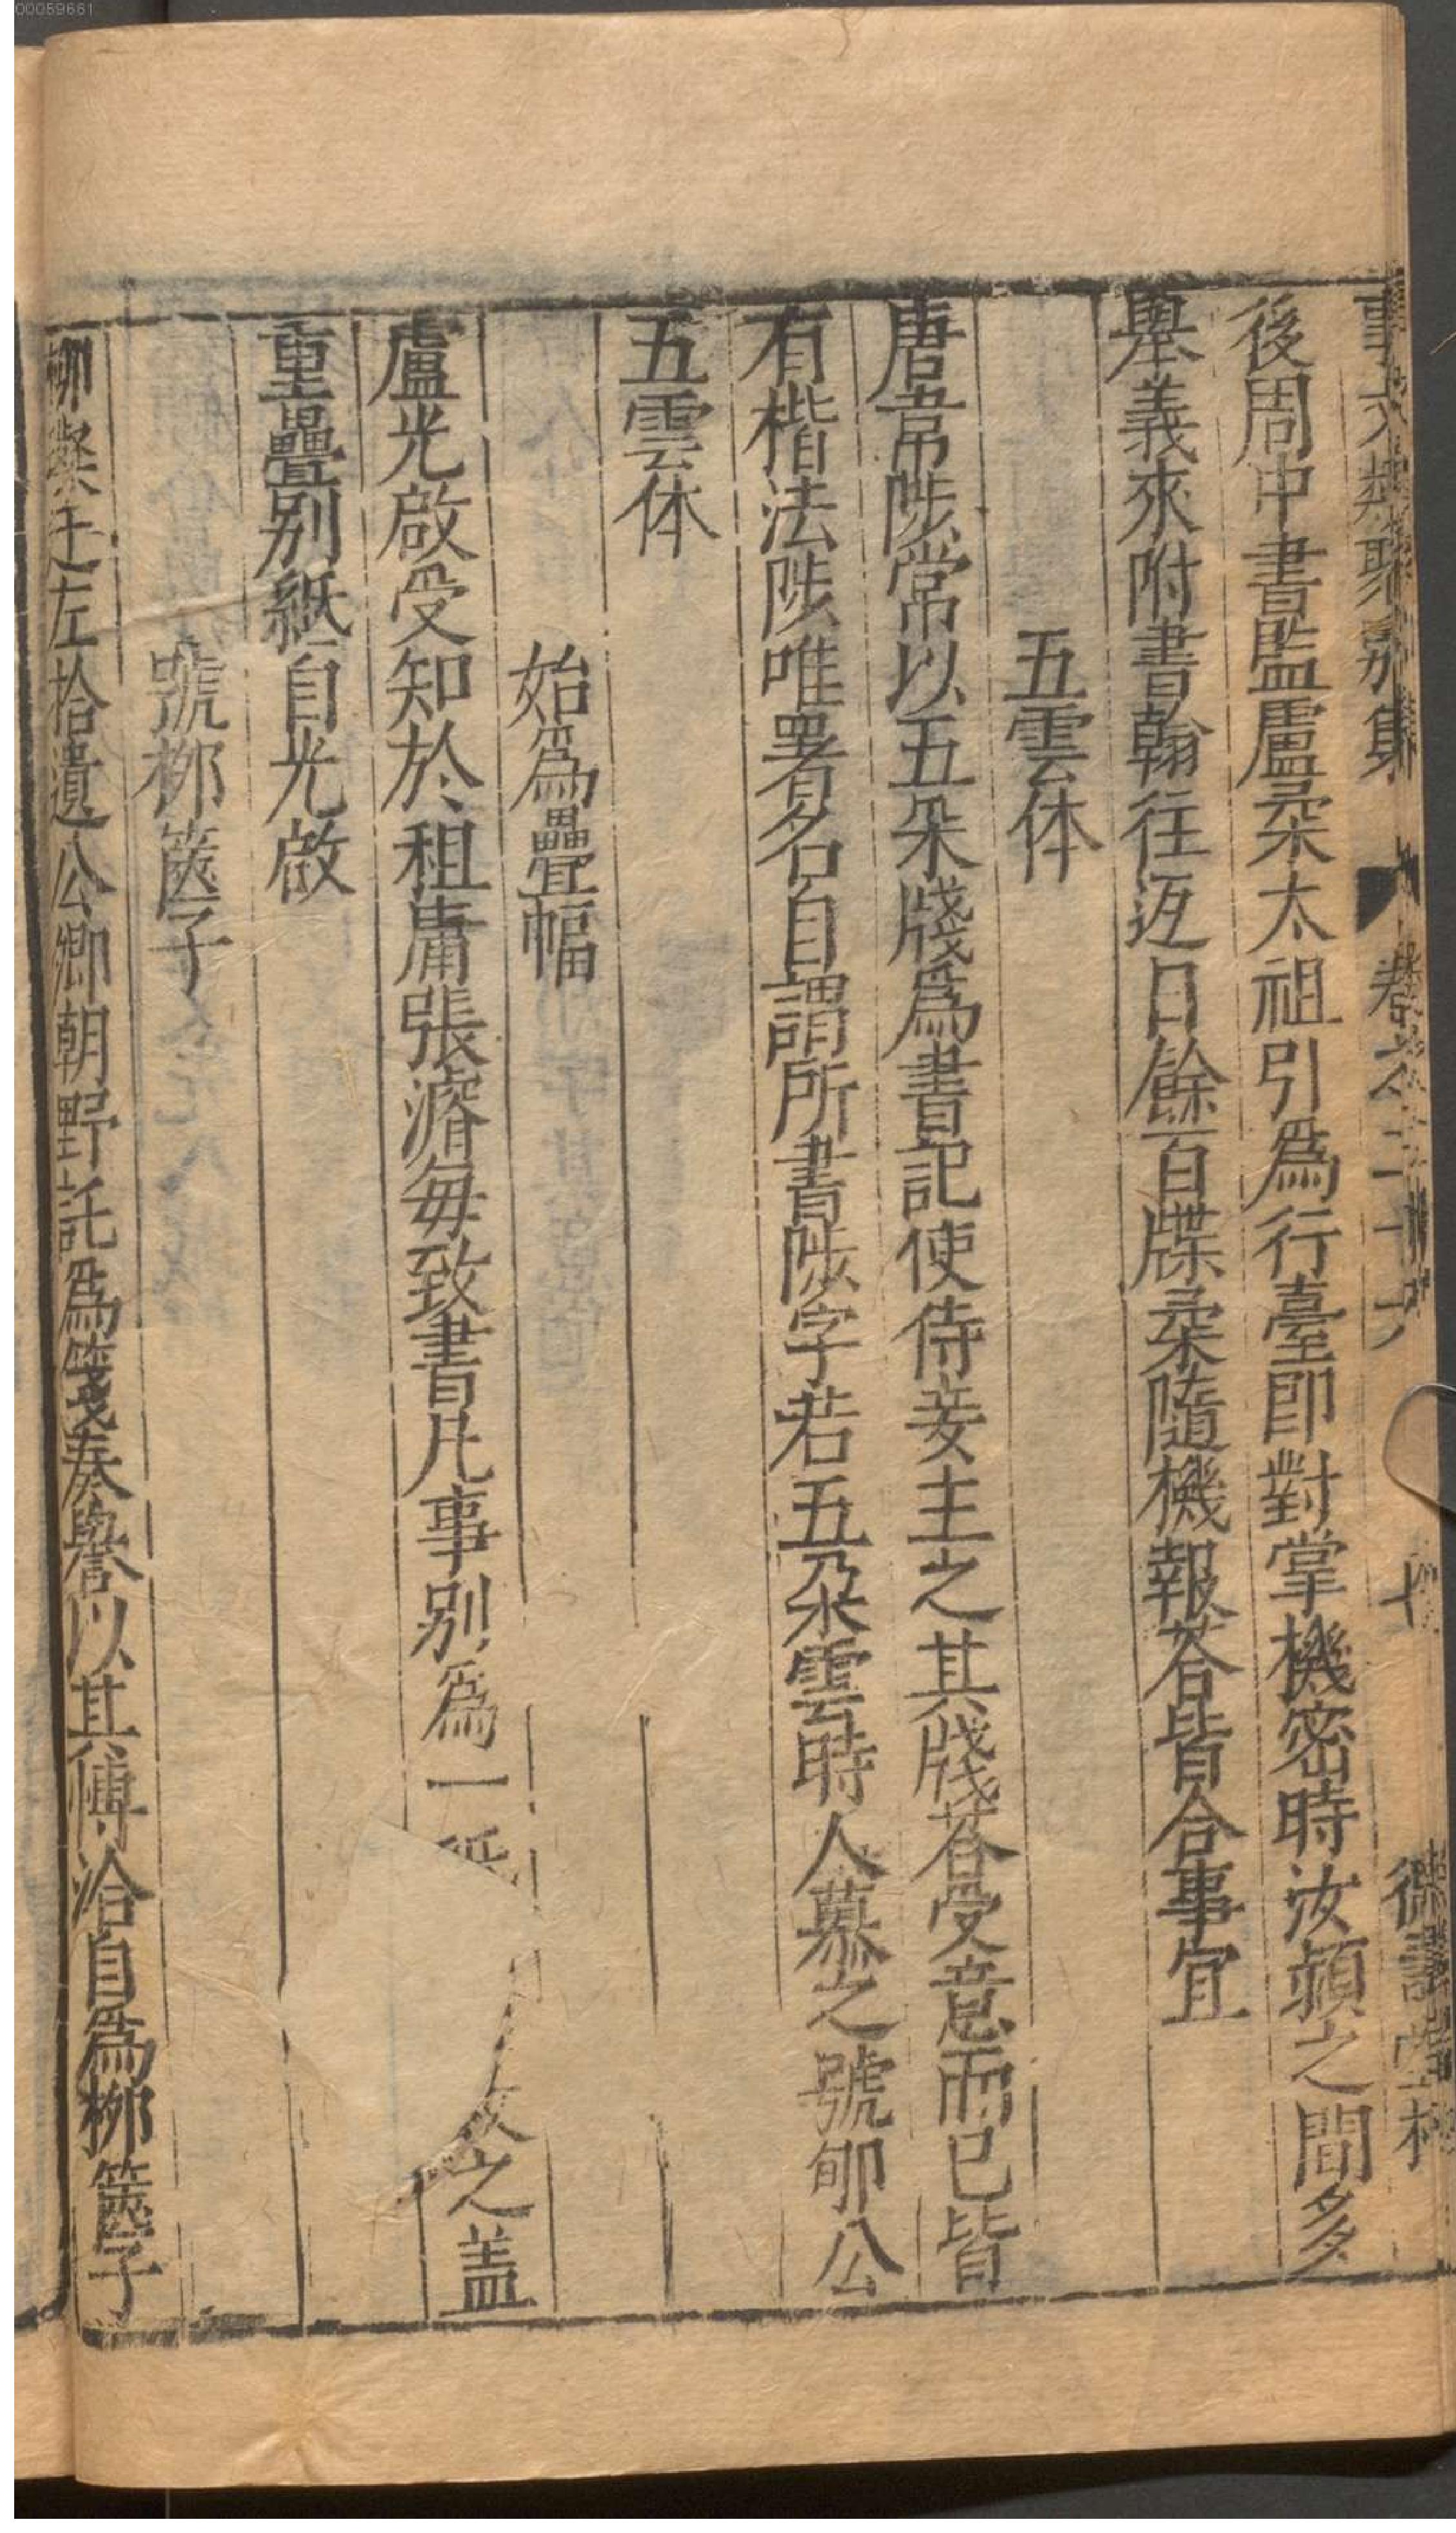 00059661
事文類聚別集 卷之二十六 七 德壽堂梓
後周中書監盧柔太祖引爲行臺郎對掌機密時汝頴之間多
舉義來附書翰往返日餘百牒柔隨機報荅皆合事宜
五雲体
唐韋陟常以五朵牋爲書記使侍妾主之其牋荅受意而已皆
有楷法陟唯署名自謂所書陟字若五朶雲時人慕之號郇公
五雲体
始爲疊幅
盧光啟受知於租庸張濬每致書凡事別爲一紙
之盖
重疊别紙自光啟
號柳篋子
柳璨迁左拾遺公卿朝野託爲箋奏譽以其博洽自爲柳篋子